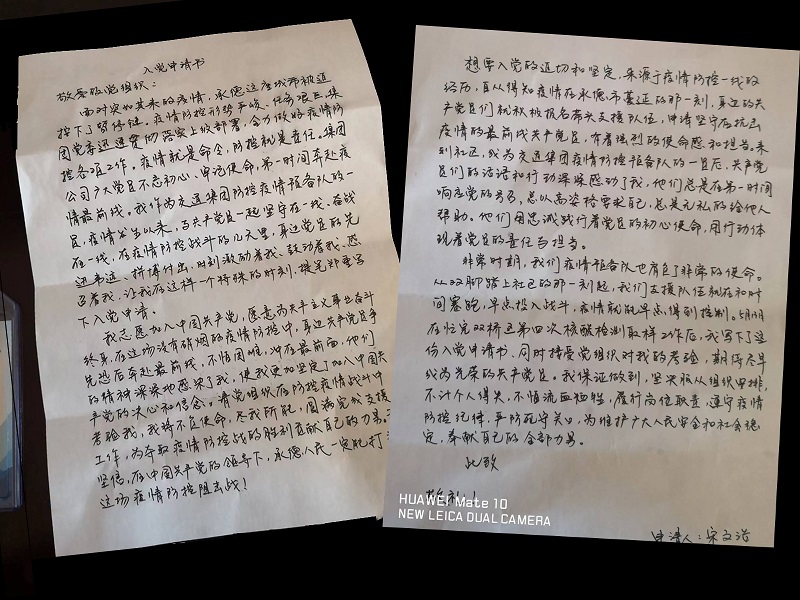 入党申请书
敬爱的党组织：
面对突如其来的疫情，承德这座城市被迫
按下了暂停键。疫情防控形势严峻、任务艰巨，集
团党委迅速贯彻落实上级部署，全力做好疫情防
控各项工作。疫情就是命令，防控就是责任。集团
公司广大党员不忘初心、牢记使命，第一时间奔赴疫
情最前线。我作为交通集团防控疫情预备队的一
员，疫情发生以来，与共产党员一起坚守在一线、奋战
在一线，在疫情防控战斗的几天里，身边党员的先
进事迹、拼搏付出，时刻激励着我、鼓动着我、感
召着我，让我在这样一个特殊的时刻，提笔郑重写
下入党申请。
我志愿加入中国共产党，愿意为共产主义事业奋斗
终身。在这场没有硝烟的疫情防控中，身边共产党员争
先恐后奔赴最前线，不惧困难，冲在最前面，他们
的精神深深地感染了我，使我更加坚定了加入中国共
产党的决心和信念。请党组织在防控疫情战斗中
考验我，我将不负使命，尽我所能，圆满完成支援
工作，为夺取疫情防控战的胜利贡献自己的力量。
坚信，在中国共产党的领导下，承德人民一定能打
这场疫情防控阻击战！
想要入党的迫切和坚定，来源于疫情防控一线的
经历，自从得知疫情在承德市蔓延的那一刻，身边的共
产党员们就积极报名带头支援队伍，申请坚守在抗击
疫情的最前线共产党员，有着强烈的使命感和担当。来
到社区，成为交通集团疫情防控预备队的一员后，共产党
员们的话语和行动深深感动了我，他们总是在第一时间
响应党的号召，总以高姿格要求自己，总是无私的给他人
帮助。他们用忠诚践行着党员的初心使命，用行动体
现着党员的责任与担当。
非常时期，我们疫情预备队也肩负了非常的使命。
从双脚踏上社区的那一刻起，我们支援队伍就在和时
间赛跑，早点投入战斗，疫情就能早点得到控制。明明
在忙完双桥区第四次核酸检测取样工作后，我写下了这
份入党申请书、同时接受党组织对我的考验，期待尽早
成为光荣的共产党员。我保证做到，坚决服从组织安排，
不计个人得失，不惜流血牺牲，履行岗位职责，遵守疫情
防控纪律，严防死守关口，为维护广大人民安全和社会稳
定，奉献自己的全部力量。
此致
敬礼！
申请人：宋文浩
HUAWEI Mate 10
NEW LEICA DUAL CAMERA